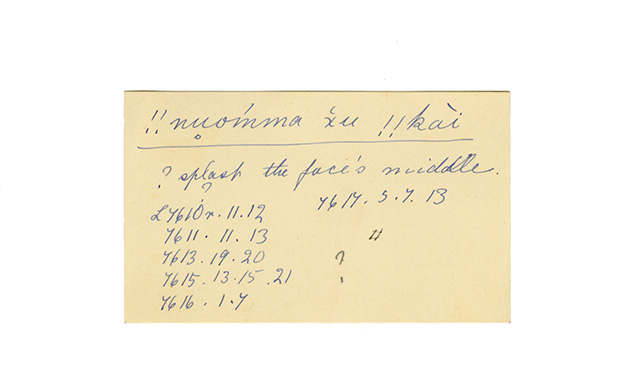 !!nu̥oḿma x́u !!kài
? splash the face's middle.
?
L7610r. 11. 12 7617. 5. 7. 13
7611. 11. 13 "
7613. 19. 20 ?
7615. 13. 15. 21
7616. 1. 7